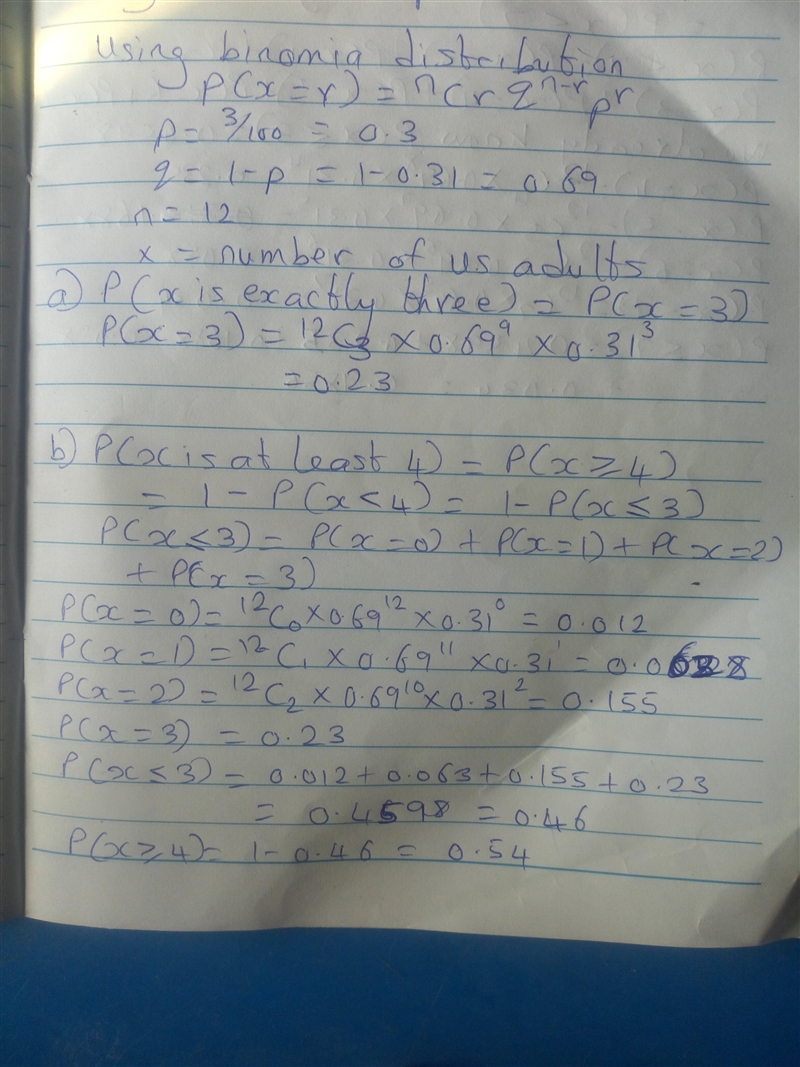 Using binomia distribution
P(x=r) = ⁿCr q^n-r p^r
p = 3/100 = 0.3
q = 1-p = 1-0.31 = 0.69
n = 12
x = number of us adults
a) P(x is exactly three) = P(x=3)
P(x=3) = ¹²C₃ × 0.69⁹ × 0.31³
= 0.23
b) P(x is at least 4) = P(x ≥ 4)
= 1 - P(x < 4) = 1 - P(x ≤ 3)
P(x ≤ 3) = P(x=0) + P(x=1) + P(x=2)
+ P(x = 3)
P(x=0) = ¹²C₀ × 0.69¹² × 0.31⁰ = 0.012
P(x=1) = ¹²C₁ × 0.69¹¹ × 0.31¹ = 0.0628
P(x=2) = ¹²C₂ × 0.69¹⁰ × 0.31² = 0.155
P(x=3) = 0.23
P(x ≤ 3) = 0.012 + 0.063 + 0.155 + 0.23
= 0.4598 = 0.46
P(x ≥ 4) = 1 - 0.46 = 0.54